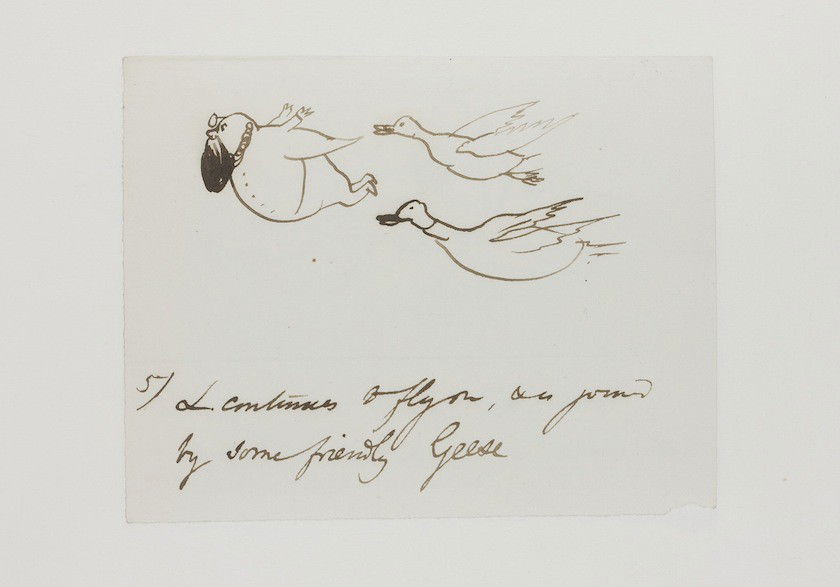 5/ L. continues to fly on, & is joined
by some friendly Geese